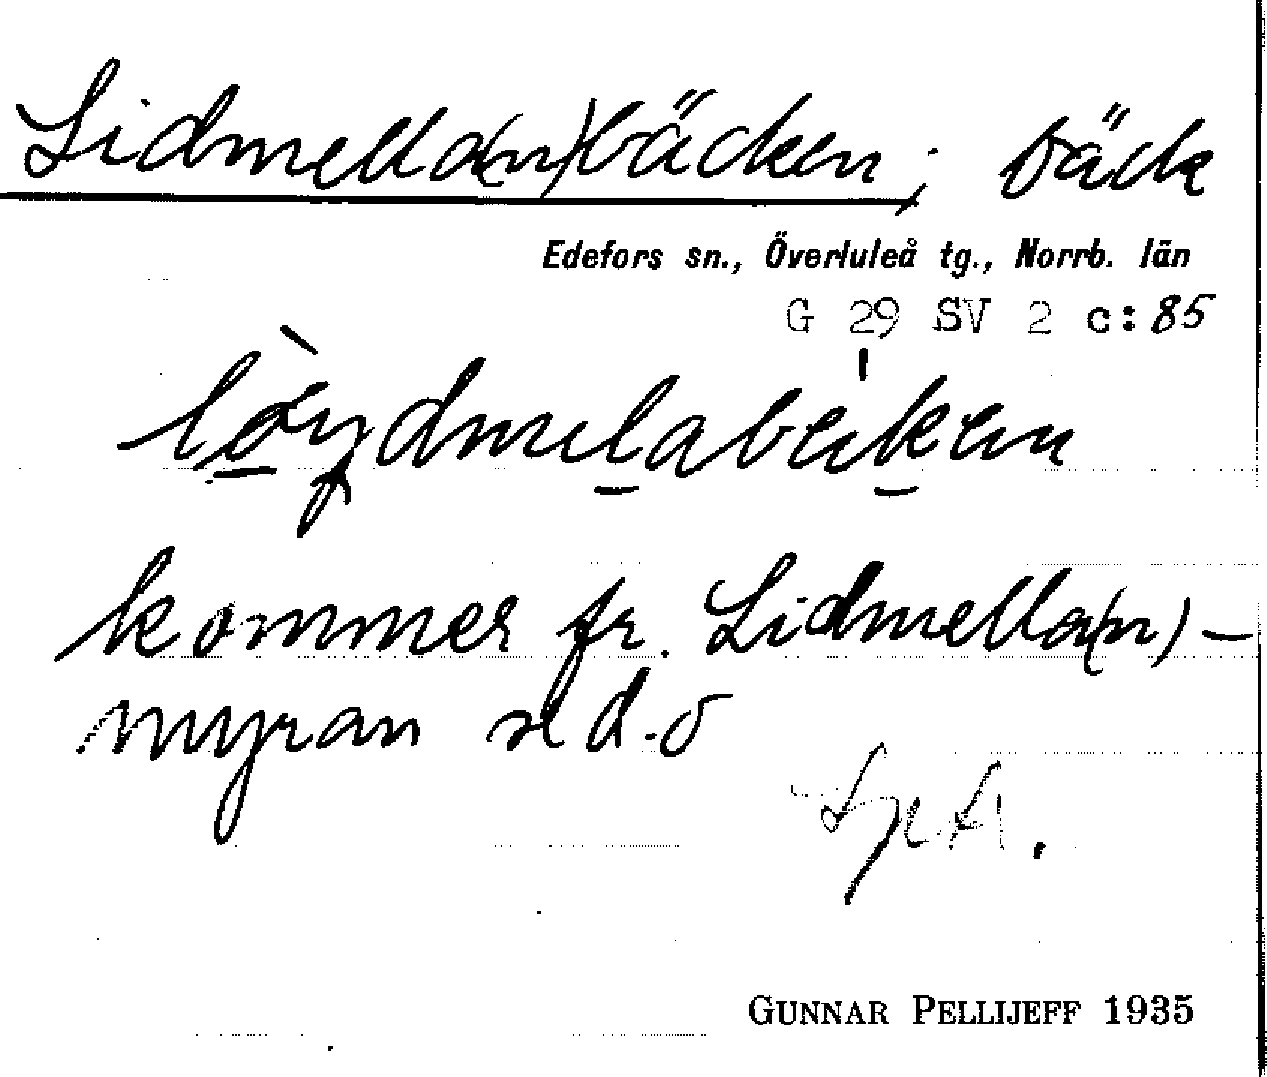 Lidmella(n)bäcken; bäck
Edefors sn., Överluleå tg., Norrb. län
G 29 SV 2 c:85
kommer fr. Lidmella(n)-
myran s d.o
GUNNAR PELLIJEFF 1935